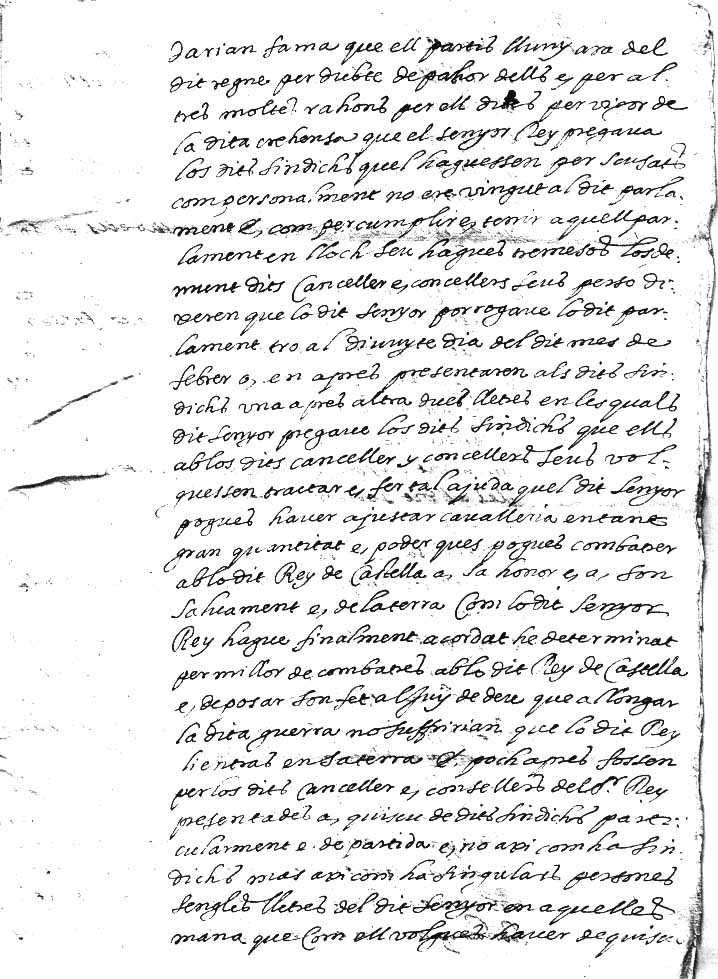 darian fama que ell partis lluny ara del
dit regne per dubte de pahor dells e, per al
tres moltes rahons per ell dites per vigor de
la dita crehensa que el senyor Rey pregava
los dits sindichs quel haguessen per scusat
com personalment no ere vingut al dit parla.
ment e, com per cumplir e, tenir aquell par.
lament en lloch seu hagues tremesos los de.
munt dits Canceller e, concellers seus perso di.
veren que lo dit senyor porrogave lo dit par.
lament tro al dinuyte dia del dit mes de
febrer o, en apres presentaren als dits sin.
dichs vna apres altra dues lletres en les quals
dit senyor pregave los dits sindichs que ells
ab los dits canceller y concellers seus vol.
guessen tractar e, fer tal ajuda quel dit senyor
pogues haver ajustar cavalleria en tant
gran quantitat e, poder ques pogues combatrer
ab lo dit Rey de Castella a, sa honor e, a, son
salvament e, de la terra Com lo dit senyor
Rey hague finalment acordat he determinat
per millor de combatres ab lo dit Rey de Castella
e, de posar son fet al Juy de deu que allongar
la dita guerra no suffririan que lo dit Rey
li entras en sa terra E poch apres fossen
per los dits Canceller e, consellers del S.r Rey
presentades a, quiscu de dits sindichs parti.
cularment e de partida e, no axi com ha sin.
dichs mas axi com ha singulars persones
sengles lletres del dit senyor en aquelles
mana que Com ell volgues haver de quiscu